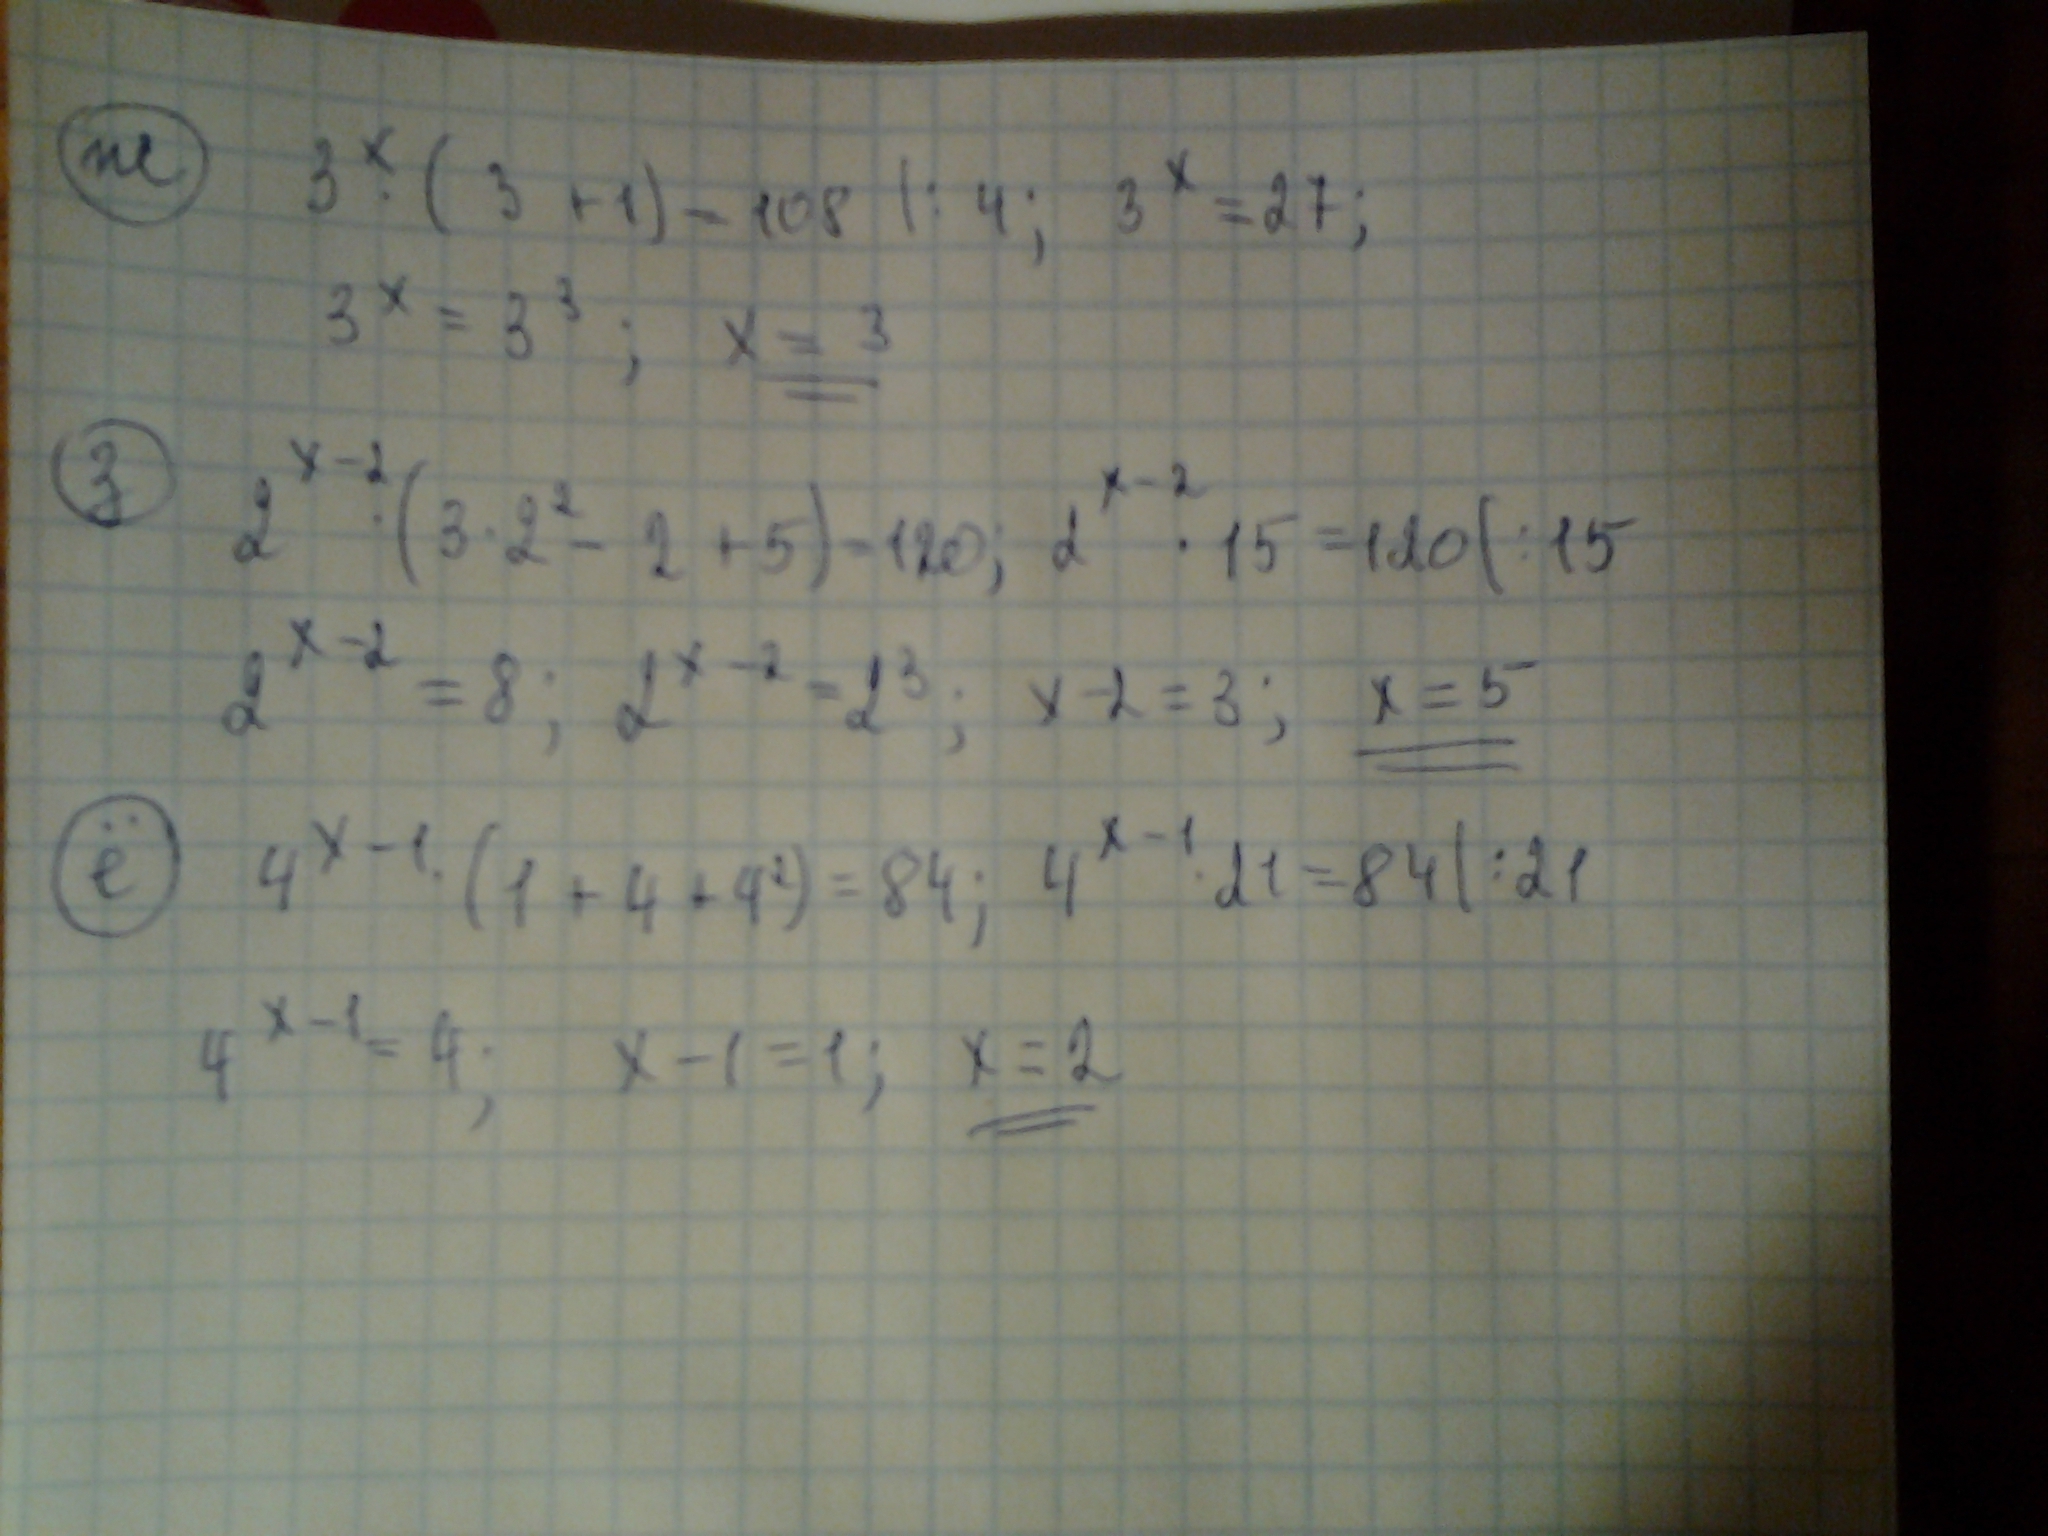 ж 3^x · (3 + 1) = 108 |: 4; 3^x = 27;
3^x = 3^3; x = 3
з 2^(x-2) · (3·2^2 - 2 + 5) = 120; 2^(x-2) · 15 = 120 |: 15
2^(x-2) = 8; 2^(x-2) = 2^3; x - 2 = 3; x = 5
ё 4^(x-1) · (1 + 4 + 4^2) = 84; 4^(x-1) · 21 = 84 |: 21
4^(x-1) = 4; x - 1 = 1; x = 2